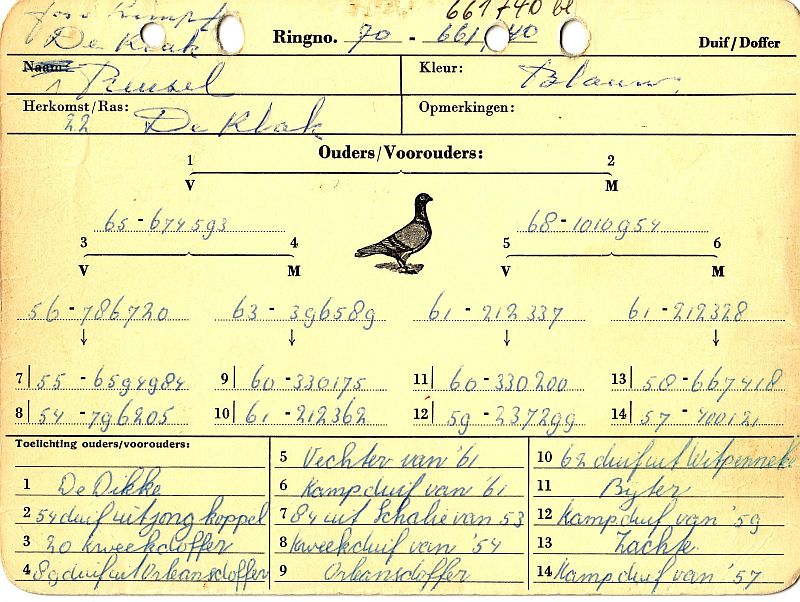 661740 be
De Klak
Ringno. 70 - 661740 Duif/Doffer
Naam: Reusel Kleur: Blauw.
Herkomst/Ras: De Klak Opmerkingen:
22
Ouders/Voorouders:
1 2
V M
65 - 674593 68 - 1010954
3 4 5 6
V M V M
56 - 786720 63 - 396589 61 - 212337 61 - 212328
↓ ↓ ↓ ↓
7 55 - 6594984 9 60 - 330175 11 60 - 330200 13 58 - 667418
8 54 - 796205 10 61 - 212362 12 59 - 237299 14 57 - 400121
Toelichting ouders/voorouders:
1 De Dikke
2 54 duif uit jong koppel
3 20 kweekdoffer
4 89 duif uit Orleansdoffer
5 Vechter van '61
6 Kampduif van '61
7 84 uit Schalie van 53
8 kweekduif van '54
9 Orleansdoffer
10 62 duif uit Witpenneke
11 Byter
12 Kampduif van '59
13 Zachte
14 Kampduif van '57